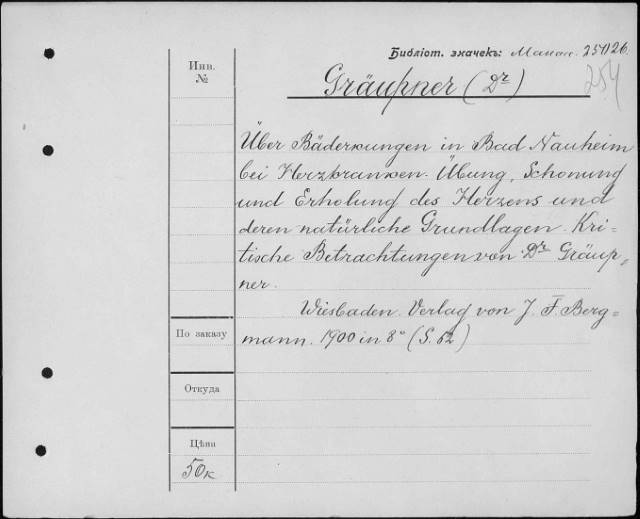 Библіот. значекъ: Манас. 257/26.
254
Инв.
№
Gräupner (Dr)
Über Bäderkungen in Bad Nauheim
bei Herzkranken. Übung, Schonung
und Erholung des Herzens und
deren natürliche Grundlagen. Kri-
tische Betrachtungen von Dr Gräup-
ner.
Wiesbaden. Verlag von J. F. Berg-
mann. 1900 in 8° (S. 62)
По заказу
Откуда
Цѣна
50к